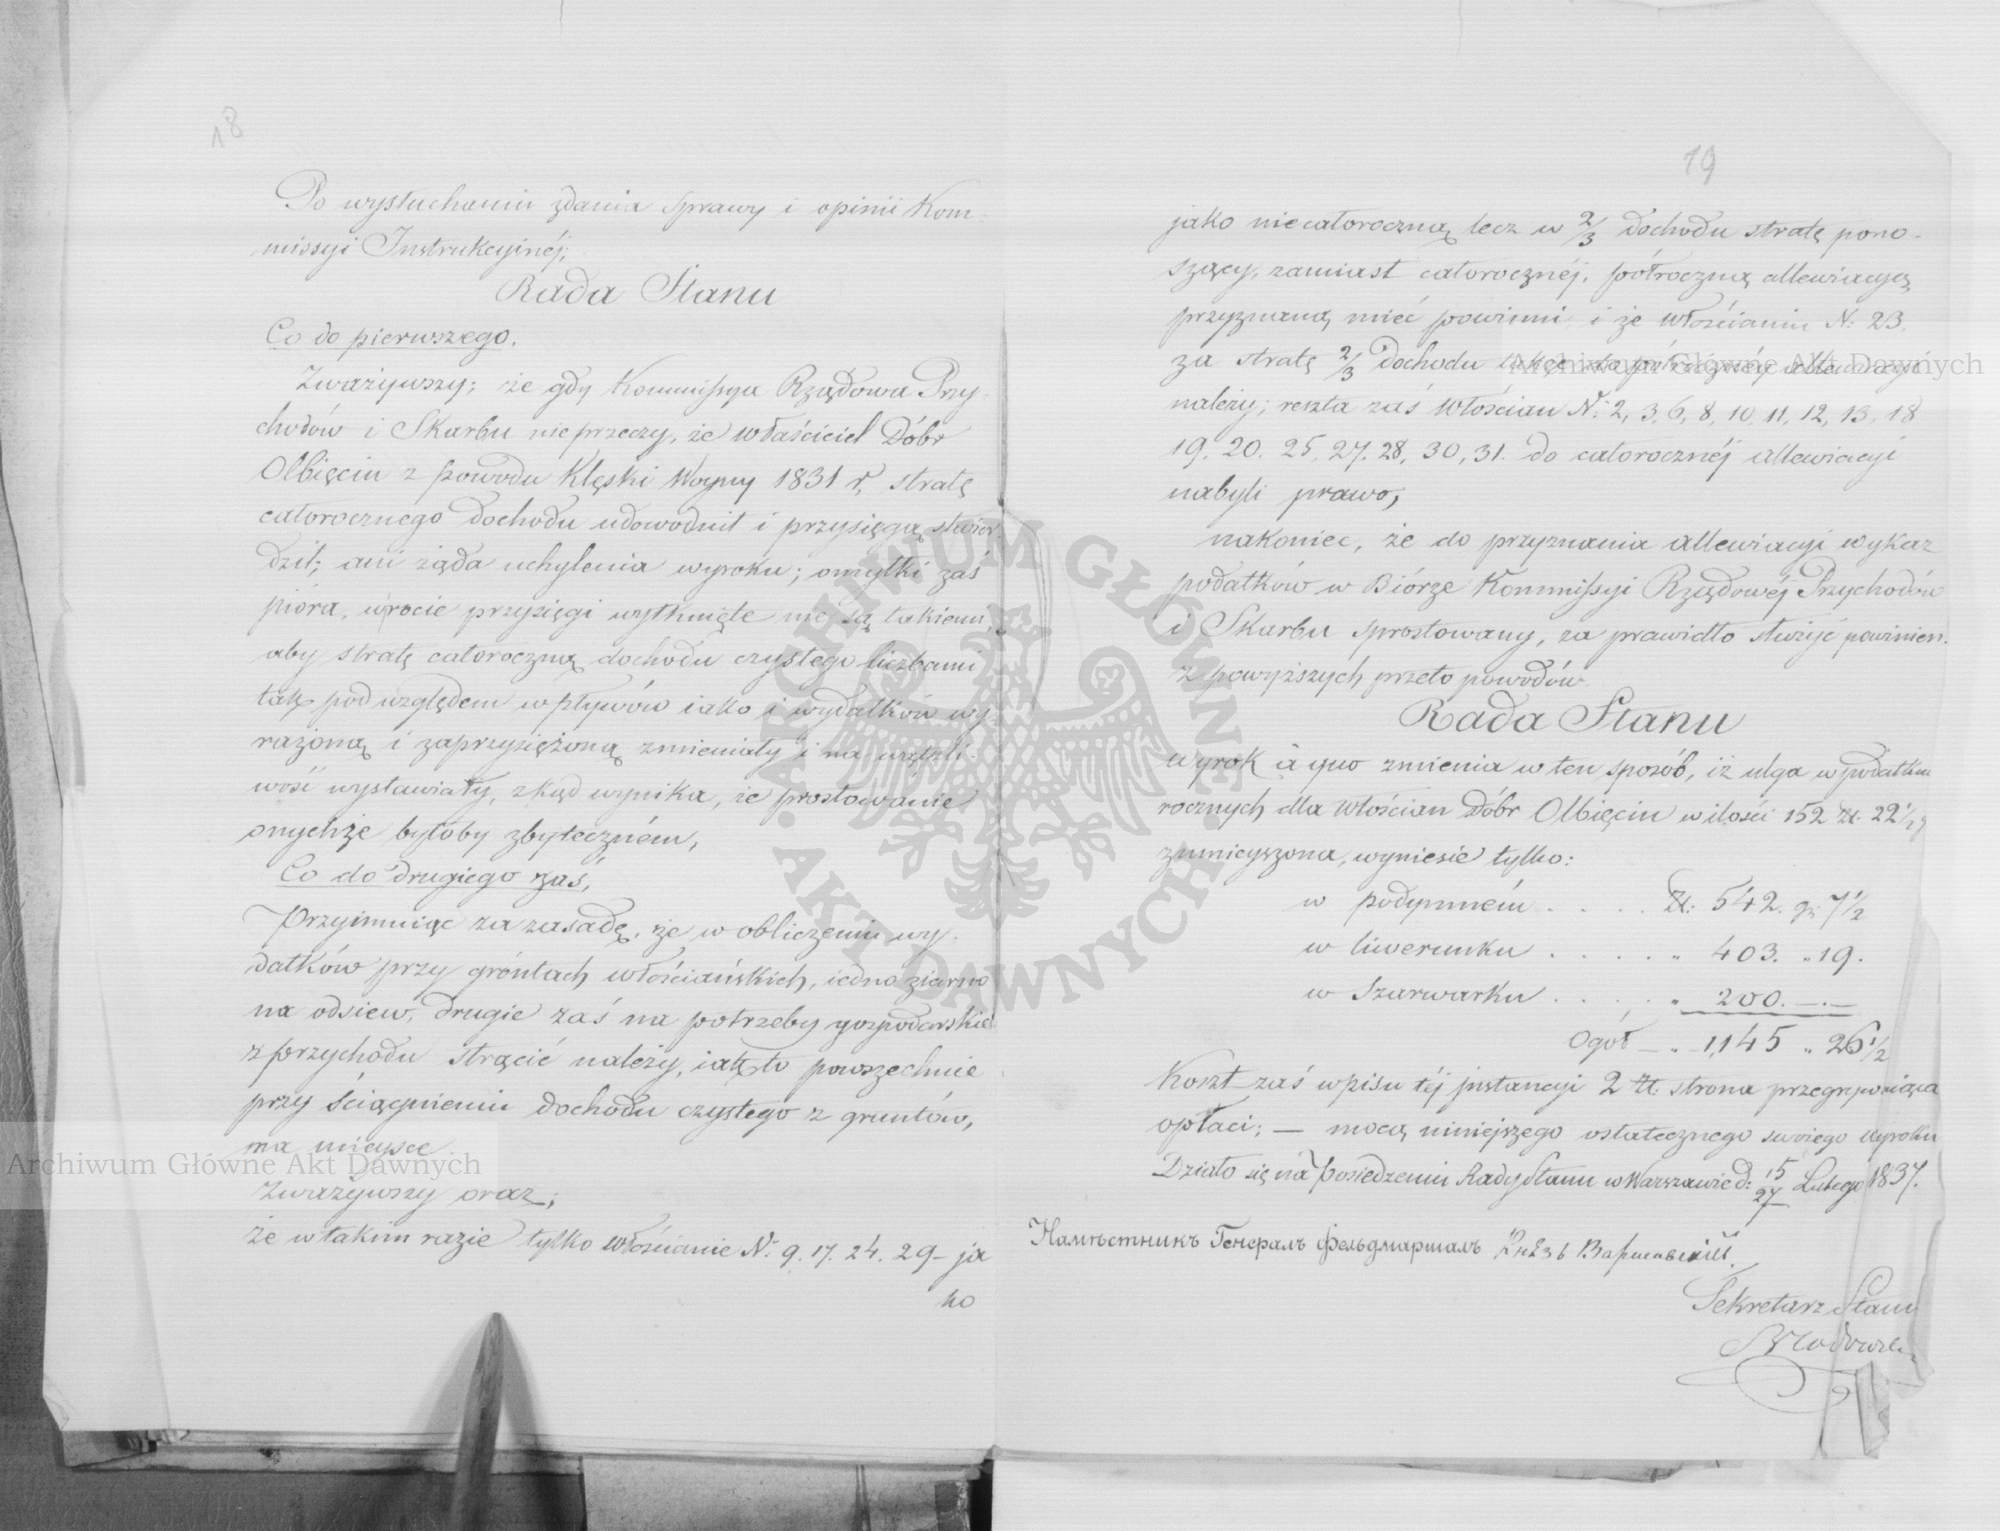 18
Po wysłuchaniu zdania sprawy i opinii Kom-
missyi Instrukcyinéj;
Rada Stanu
Co do pierwszego.
Zważywszy; że gdy Kommissya Rządowa Przy-
chodów i Skarbu nieprzeczy, że właściciel Dóbr
Olbięcin z powodu Klęski Woyny 1831 r, stratę
całorocznego dochodu udowodnił i przysięgą stwier-
dził; ani żąda uchylenia wyroku; omyłki zaś
pióra, w rocie przysięgi wytknięte nie są takiemi,
aby stratę całoroczną dochodu czystego liczbami
tak pod względem wpływów iako i wydatków wy-
rażoną i zaprzysiężoną zmieniały i na wątpli-
wość wystawiały, zkąd wynika, że prostowanie
onychże byłoby zbyteczném,
Co do drugiego zaś,
Przyimuiąc za zasadę, że w obliczeniu wy-
datków przy gróntach włościańskich, iedno ziarno
na odsiew, drugie zaś na potrzeby gospodarskie
z przychodu strącić należy, iak to powszechnie
przy ściągnieniu dochodu czystego z gruntów,
ma mieysce
Zważywszy oraz;
że w takim razie tylko włościanie N. 9. 17. 24. 29 – ja
ko
19
jako niecałoroczną lecz w 2/3 dochodu stratę pono-
szący, zamiast całorocznéj, półroczną allewiacyą
przyznaną mieć powinni i że włościanin N. 23.
za stratę 2/3 dochodu także do półrocznéj allewiacyi
należy; reszta zaś Włościan N. 2, 3, 6, 8, 10, 11, 12, 13, 18
19. 20. 25, 27. 28, 30, 31. do całorocznéj allewiacyi
nabyli prawo,
nakoniec, że do przyznania allewiacyi wykaz
podatków w Biórze Kommissyi Rządowéj Przychodów
i Skarbu sprostowany, za prawidło służyć powinien.
z powyższych przeto powodów
Rada Stanu
wyrok à quo zmienia w ten sposób, iż ulga w podatku
rocznych dla Włościan Dóbr Olbięcin w ilości 152 zł. 22 1/2 g
zmnieyszona, wyniesie tylko:
w podymném . . . . Zł: 542. gr 7 1/2
w liwerunku . . . . . „ 403. „ 19.
w Szarwarku . . . . „ 200. —.—
Ogół — „ 1,145 „ 26 1/2
Koszt zaś wpisu téj jnstancyi 2 zł. strona przegrywaiąca
opłaci; — mocą niniejszego ostatecznego swoiego wyroku
Działo się na Posiedzeniu Rady Stanu w Warszawie d: 15/27 Lutego 1837.
Намѣстникъ Генералъ Фельдмаршалъ Князь Варшавскій.
Sekretarz Stanu
Archiwum Główne Akt Dawnych
Archiwum Główne Akt Dawnych
ARCHIWUM GŁÓWNE
· AKT DAWNYCH ·